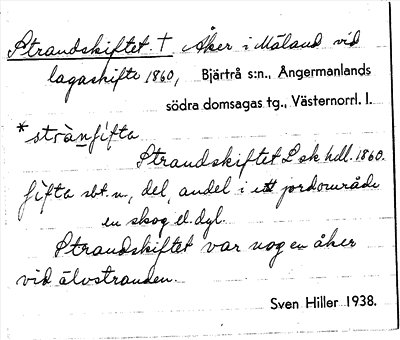 Strandskiftet † Åker i Måland vid
lagaskifte 1860, Bjärtrå s:n., Ångermanlands
södra domsagas tg., Västernorrl. l.
*strànʃifta
Strandskiftet L sk hdl. 1860.
ʃifta sbt. n, del, andel i ett jordområde
en skog el. dyl.
Strandskiftet var nog en åker
vid älvstranden.
Sven Hiller 1938.